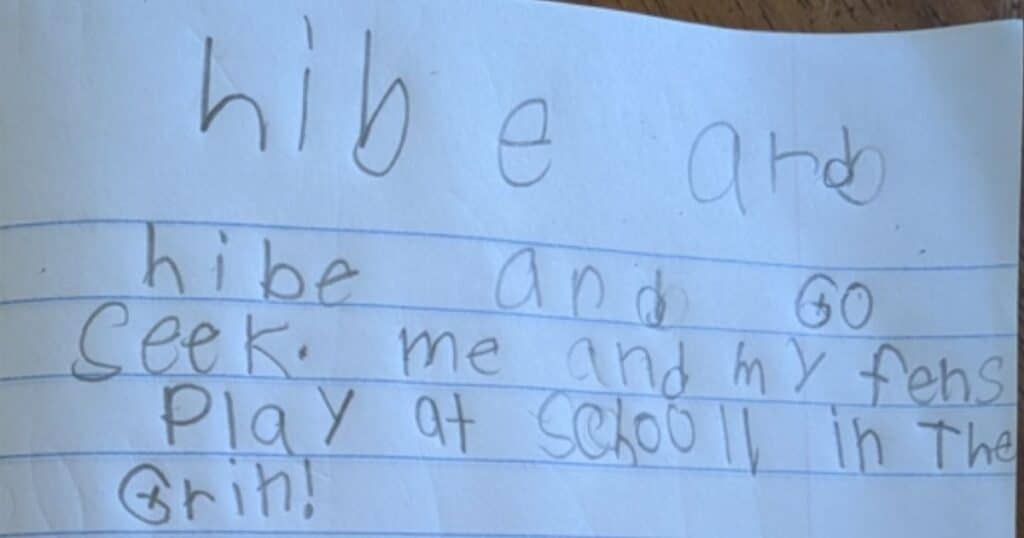 hib e and
hibe and GO
Seek. me and my fens
Play at schooll in The
Grin!